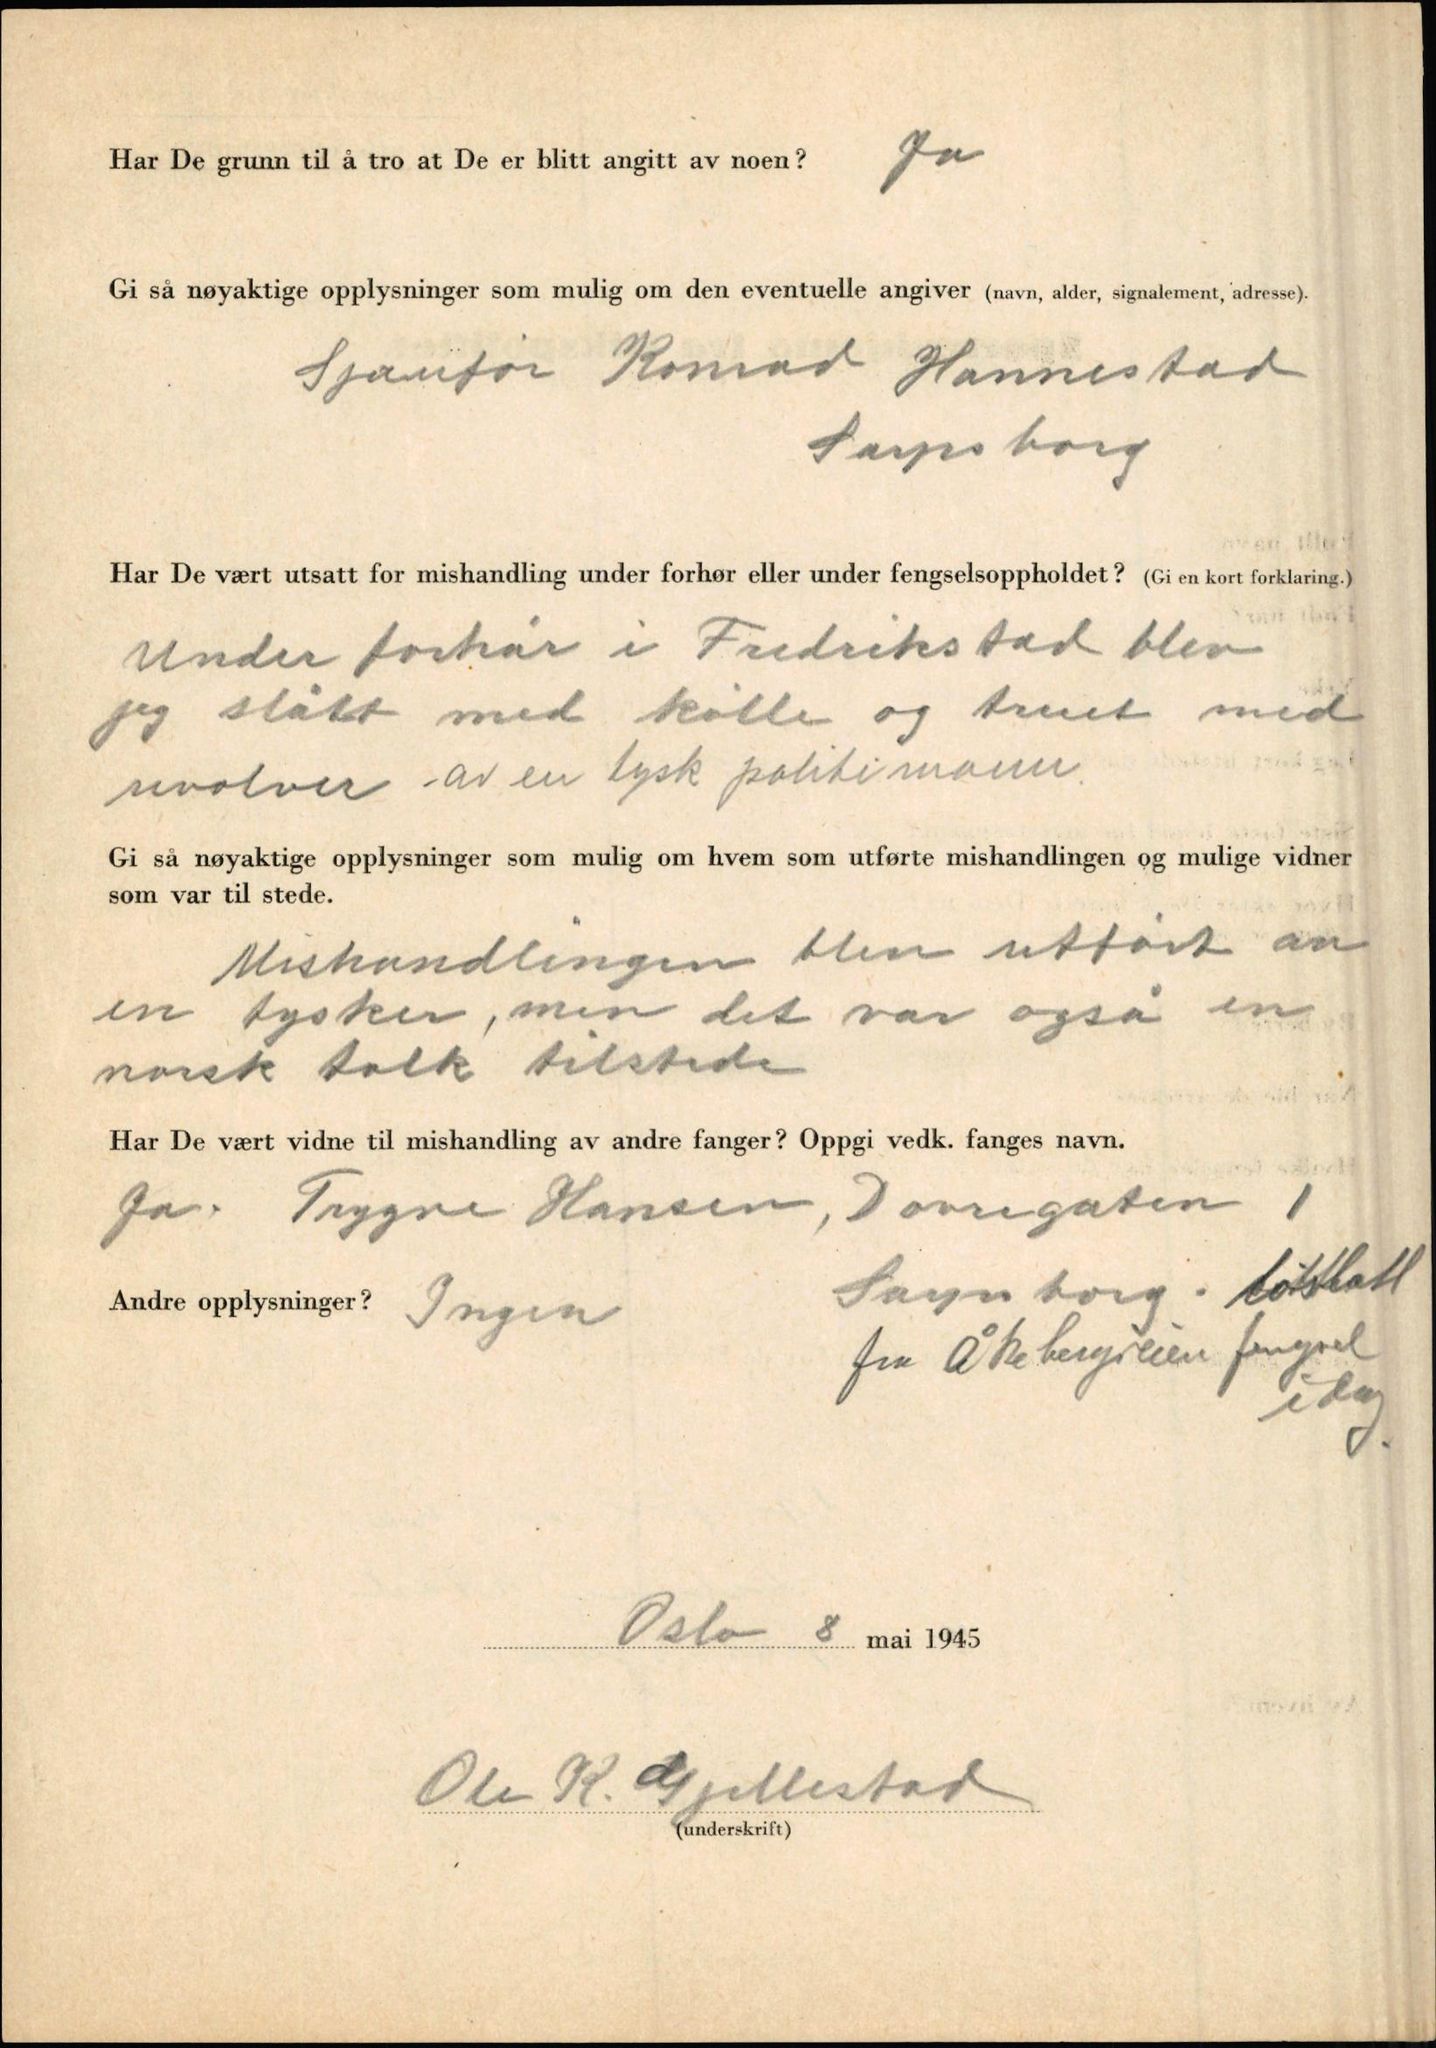 Har De grunn til å tro at De er blitt angitt av noen? Ja
Gi så nøyaktige opplysninger som mulig om den eventuelle angiver (navn, alder, signalement, adresse).
Sjaufør Konrad Hannestad
Sarpsborg
Har De vært utsatt for mishandling under forhør eller under fengselsoppholdet? (Gi en kort forklaring.)
Under forhør i Fredrikstad blev
jeg slått med kølle og truet med
revolver av en tysk politimann.
Gi så nøyaktige opplysninger som mulig om hvem som utførte mishandlingen og mulige vidner
som var til stede.
Mishandlingen blev utført av
en tysker, men det var også en
norsk tolk tilstede
Har De vært vidne til mishandling av andre fanger? Oppgi vedk. fanges navn.
Ja. Trygve Hansen, Dovregaten 1
Sarpsborg. løslatt
Andre opplysninger? Ingen
fra Åkebergveien fengsel
idag.
Oslo 8 mai 1945
Ole K. Gjellestad
(underskrift)